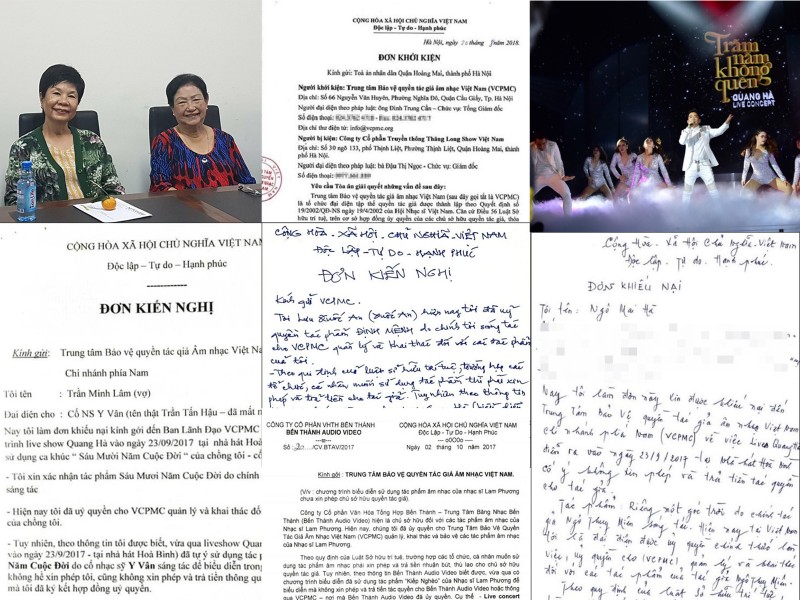 CỘNG HÒA XÃ HỘI CHỦ NGHĨA VIỆT NAM
Độc lập - Tự do - Hạnh phúc
Hà Nội, ngày tháng 5 năm 2018.
ĐƠN KHỞI KIỆN
Kính gửi: Toà án nhân dân Quận Hoàng Mai, thành phố Hà Nội
Người khởi kiện: Trung tâm Bảo vệ quyền tác giả âm nhạc Việt Nam (VCPMC)
Địa chỉ: Số 66 Nguyễn Văn Huyên, Phường Nghĩa Đô, Quận Cầu Giấy, Tp. Hà Nội
Người đại diện theo pháp luật: ông Đinh Trung Cẩn - Chức vụ: Tổng Giám đốc
Số điện thoại:
Địa chỉ thư điện tử: info@vcpmc.org
Người bị kiện: Công ty Cổ phần Truyền thông Thăng Long Show Việt Nam
Địa chỉ: Số 30 ngõ 133, phố Thịnh Liệt, Phường Thịnh Liệt, Quận Hoàng Mai, thành phố Hà Nội.
Người đại diện theo pháp luật: bà Đậu Thị Ngọc - Chức vụ: Giám đốc
Số điện thoại:
Yêu cầu Tòa án giải quyết những vấn đề sau đây:
Trung tâm Bảo vệ quyền tác giả âm nhạc Việt Nam (sau đây gọi tắt là VCPMC)
là tổ chức đại diện tập thể quyền tác giả được thành lập theo Quyết định số
19/2002/QĐ-NS ngày 19/4/2002 của Hội Nhạc sĩ Việt Nam. Căn cứ Điều 36 Luật Sở
hữu trí tuệ, trên cơ sở hợp đồng ủy quyền của các chủ sở hữu quyền tác giả,
Trăm
năm
không
quên
QUANG HÀ
LIVE CONCERT
CỘNG HÒA XÃ HỘI CHỦ NGHĨA VIỆT NAM
Độc lập – Tự do – Hạnh phúc
ĐƠN KIẾN NGHỊ
Kính gửi: Trung tâm Bảo vệ quyền tác giả Âm nhạc Việt Nam
Chi nhánh phía Nam
Tôi tên : Trần Minh Lâm (vợ)
Đại diện cho : Cố NS Y Vân (tên thật Trần Tấn Hậu – đã mất
Nay tôi làm đơn khiếu nại kính gởi đến Ban Lãnh Đạo VCPMC
trình live show Quang Hà vào ngày 23/09/2017 tại nhà hát Hoà
sử dụng ca khúc “ Sáu Mươi Năm Cuộc Đời ” của chồng tôi - cố
- Tôi xin xác nhận tác phẩm Sáu Mươi Năm Cuộc Đời do chính
sáng tác
- Hiện nay tôi đã uỷ quyền cho VCPMC quản lý và khai thác
của chồng tôi.
- Tuy nhiên, theo thông tin tôi được biết, vừa qua liveshow Quang
vào ngày 23/9/2017 - tại nhà hát Hoà Bình) đã tự ý sử dụng tác
Năm Cuộc Đời do cố nhạc sỹ Y Vân sáng tác để biểu diễn trong
không hề xin phép tôi, cũng không xin phép và trả tiền thông qu
mà tôi đã ký kết hợp đồng uỷ quyền.
CỘNG HÒA - XÃ HỘI - CHỦ NGHĨA - VIỆT NAM
ĐỘC LẬP - TỰ DO - HẠNH PHÚC
ĐƠN KIẾN NGHỊ
Kính gửi VCPMC.
Tôi Lưu Quốc An (Quốc An) hiện nay tôi đã uỷ
quyền tác phẩm ĐỊNH MỆNH do chính tôi sáng tác
cho VCPMC quản lý và khai thác đối với các tác phẩm
của tôi.
- Theo qui định của luật sở hữu trí tuệ, trường hợp các
tổ chức, cá nhân muốn sử dụng tác phẩm thì phải xin
phép và trả tiền cho tác giả. Tuy nhiên theo thông tin
CÔNG TY CỔ PHẦN VHTH BẾN THÀNH
BẾN THÀNH AUDIO VIDEO
Số /CV BTAV/2017
CỘNG HÒA XÃ HỘI CHỦ NGHĨA VIỆT NAM
Độc Lập - Tự Do - Hạnh Phúc
Ngày 02 tháng 10 năm 2017
Kính gửi : TRUNG TÂM BẢO VỆ QUYỀN TÁC GIẢ ÂM NHẠC VIỆT NAM.
(V/v : chương trình biểu diễn sử dụng tác phẩm âm nhạc của nhạc sĩ Lam Phương
chưa xin phép chủ sở hữu quyền tác giả).
Công ty Cổ Phần Văn Hóa Tổng Hợp Bến Thành – Trung Tâm Băng Nhạc Bến
Thành (Bến Thành Audio Video) hiện là chủ sở hữu đối với các tác phẩm âm nhạc của
nhạc sĩ Lam Phương. Hiện nay, chúng tôi đã ủy quyền cho Trung Tâm Bảo Vệ Quyền
Tác Giả Âm Nhạc Việt Nam (VCPMC) quản lý, khai thác và bảo vệ các tác phẩm của
Theo quy định của Luật Sở hữu trí tuệ, trường hợp các tổ chức, cá nhân muốn sử
dụng tác phẩm âm nhạc phải xin phép và trả tiền nhuận bút, thù lao cho chủ sở hữu
quyền tác giả. Tuy nhiên, theo thông tin Bến Thành Audio Video biết được, vừa qua có
chương trình biểu diễn đã sử dụng tác phẩm “Kiếp Nghèo” của Nhạc sĩ Lam Phương để
biểu diễn mà không xin phép và trả tiền cho Bến Thành Audio Video hoặc thông
qua VCPMC – nơi mà Bến Thành Audio Video đã ủy quyền. Cụ thể - Live concert
Cộng Hòa Xã Hội Chủ Nghĩa Việt Nam
Độc lập - Tự do - Hạnh phúc.
ĐƠN KHIẾU NẠI
Tôi tên: Ngô Mai Hà
Nay tôi làm đơn này xin được khiếu nại đến
Trung Tâm Bảo Vệ quyền tác giả âm nhạc Việt Nam
chi nhánh phía Nam (VCPMC) về việc Live Quang Hà
diễn ra vào ngày 23/9/2017 tại nhà hát Hòa Bình
cố ý không xin phép và trả tiền tác quyền
cho tác giả.
Tác phẩm: Riêng một góc trời do chính tác
giả Ngô Thụy Miên sáng tác. Hiện nay tại Việt Nam